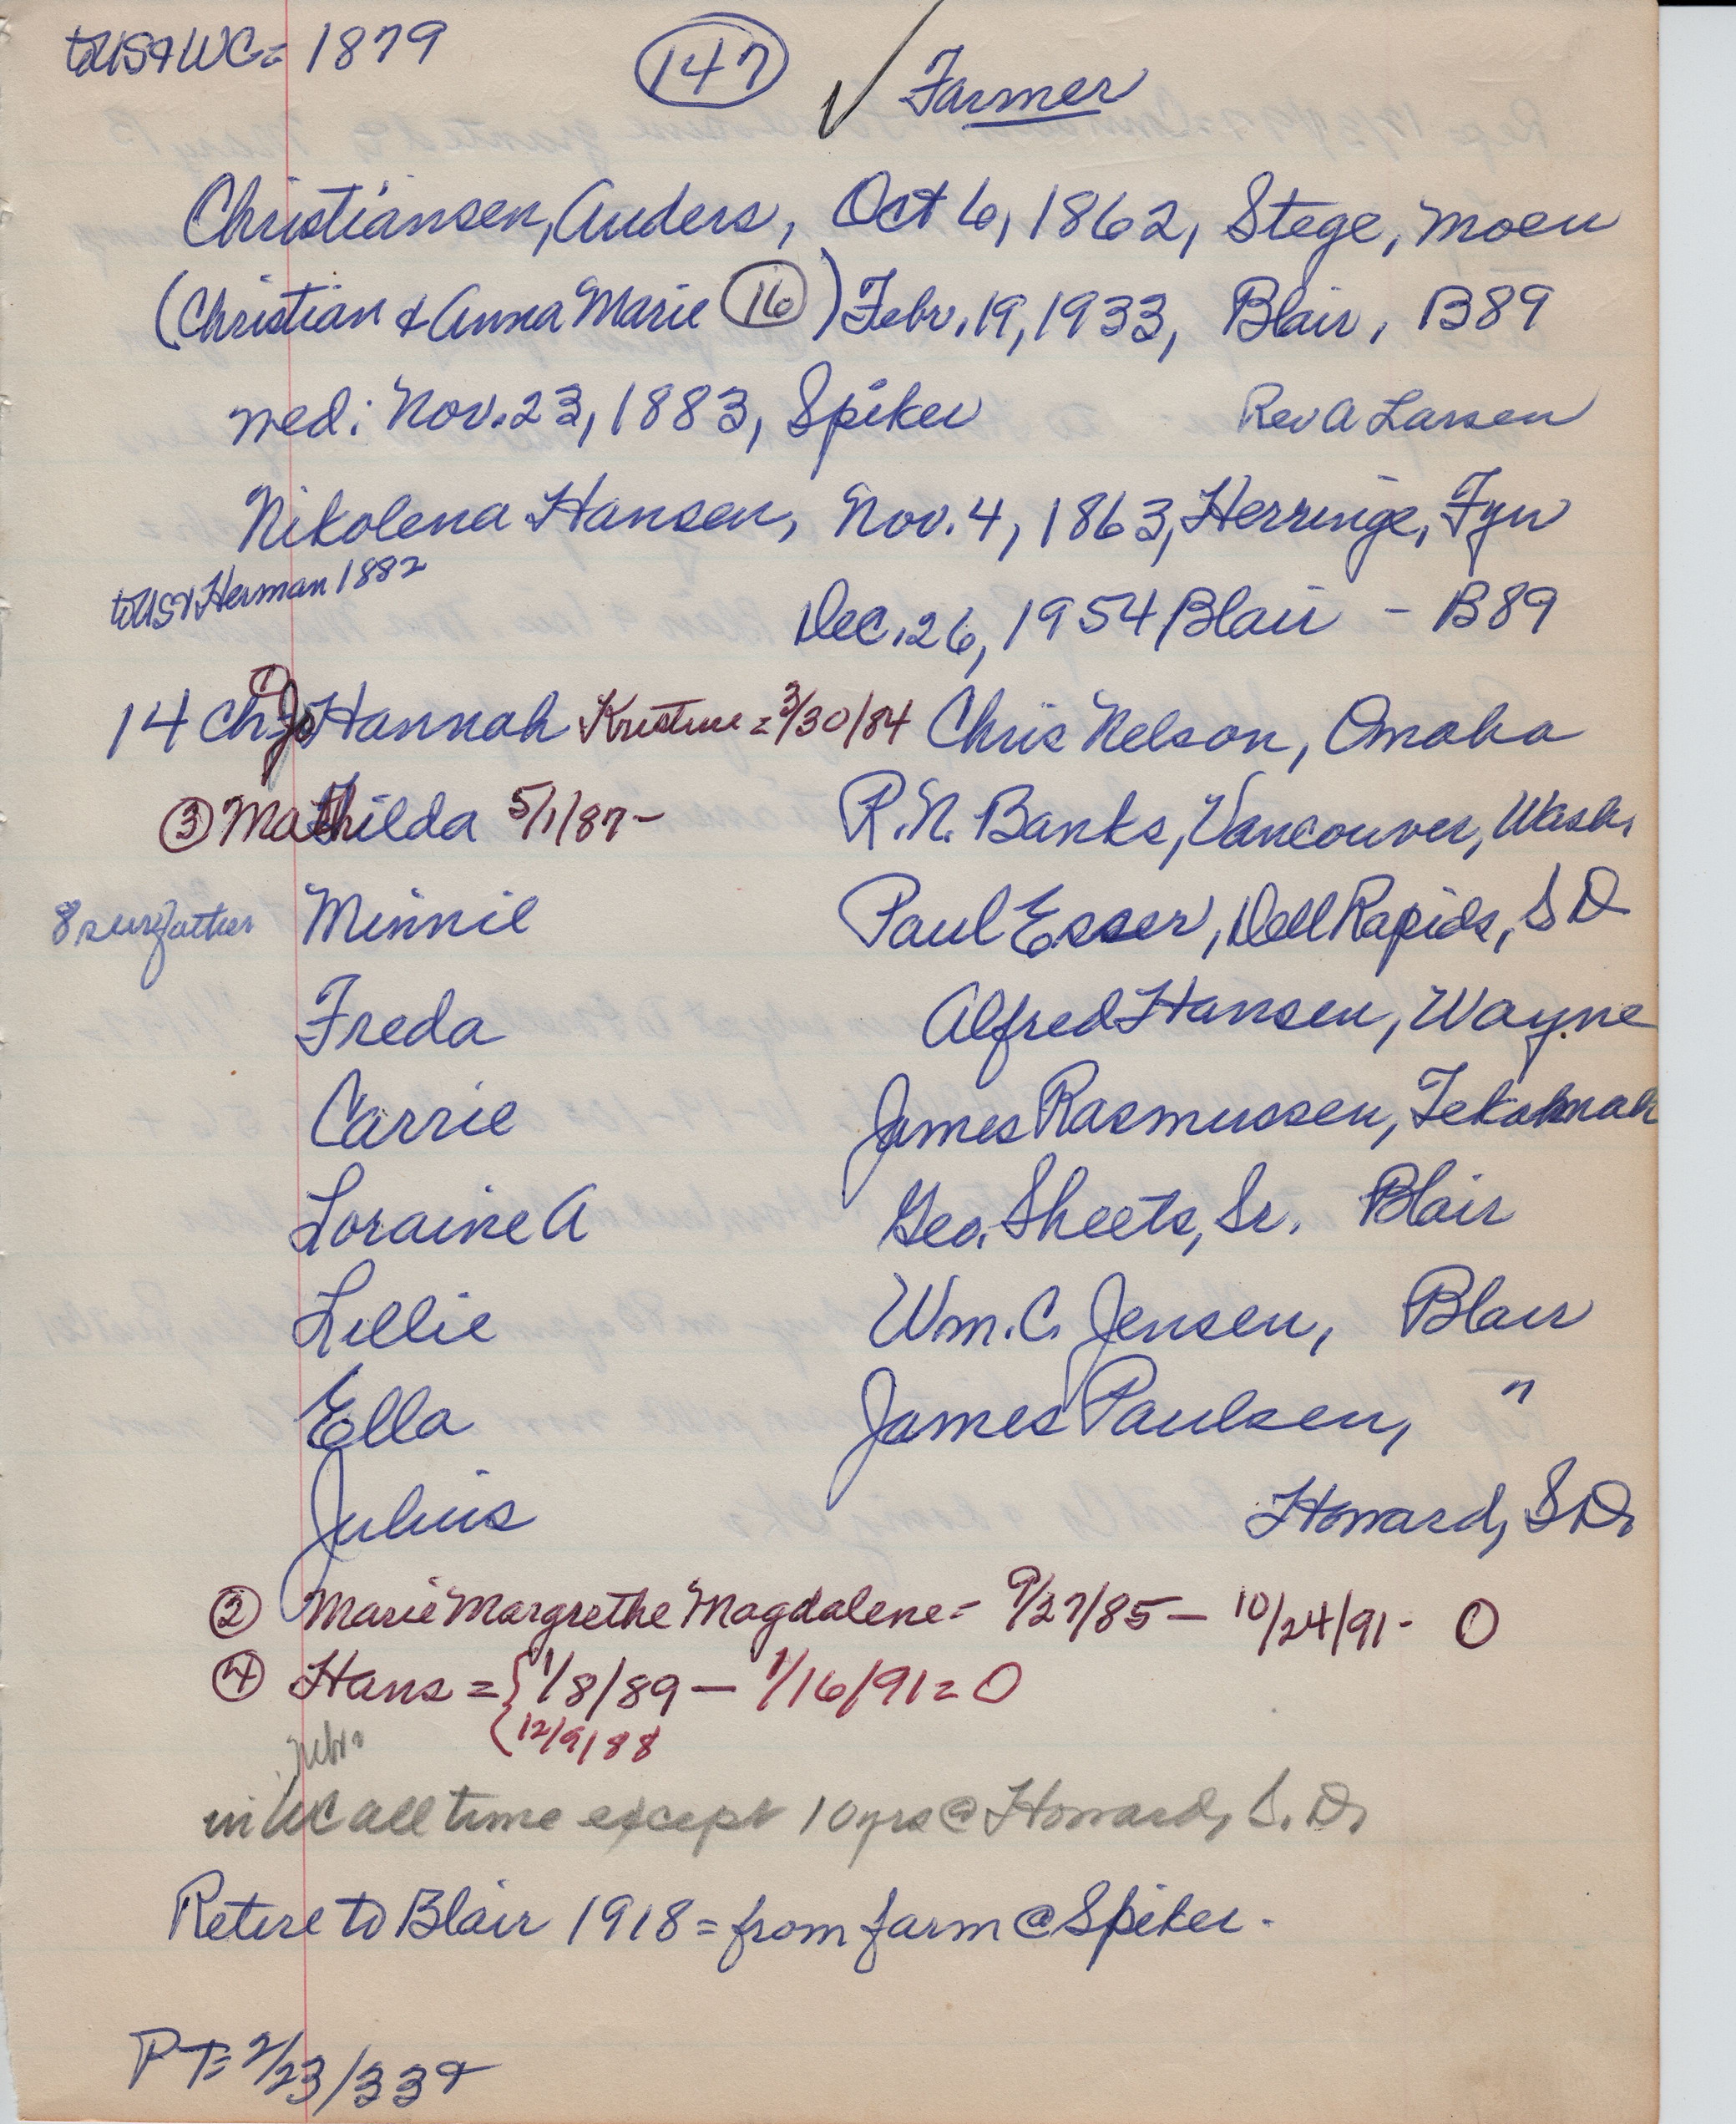 to US & WC = 1879
147 ✓ Farmer
Christiansen, Anders, Oct 6, 1862, Stege, Moen
(Christian & Anna Marie 16) Febr. 19, 1933, Blair, B89
wed: Nov. 23, 1883, Spiker Rev A Larsen
Nikolena Hansen, Nov. 4, 1863, Herringe, Fyn
to US & Herman 1882
Dec. 26, 1954 Blair - B89
14 ch: ① Jo Hannah Kristine = 3/30/84 Chris Nelson, Omaha
③ Mathilda 5/1/87 - R.N. Banks, Vancouver, Wash.
8 surv father Minnie Paul Esser, Dell Rapids, S D
Freda Alfred Hansen, Wayne
Carrie James Rasmussen, Tekahmah
Loraine A Geo. Sheets, Sr. Blair
Lillie Wm. C. Jensen, Blair
Ella James Paulsen, "
Julius Howard, S D.
② Marie Margrethe Magdalene = 9/27/85 — 10/24/91 - O
④ Hans = { 1/8/89 — 1/16/91 = O
{ 12/9/88
in WC all time except 10 yrs @ Howard, S. D.
Retire to Blair 1918 = from farm @ Spiker.
PT = 2/23/33 &